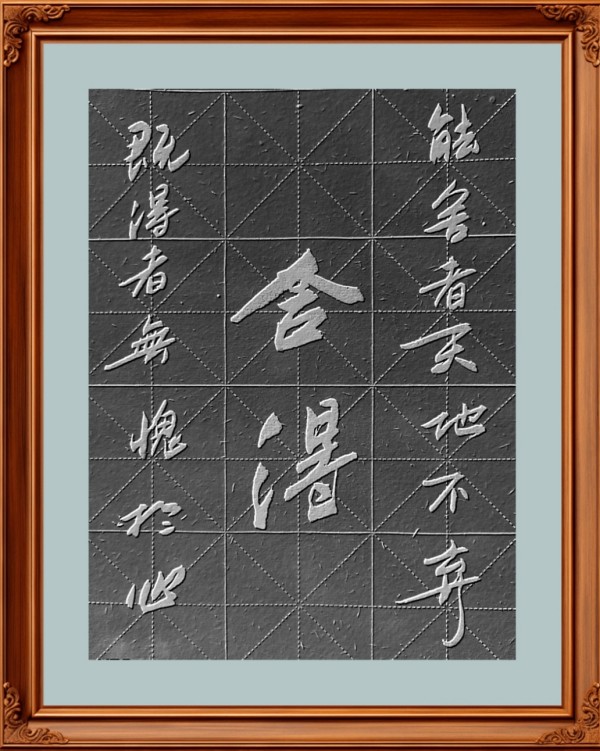 能舍者天地不弃
舍得
既得者無愧於心